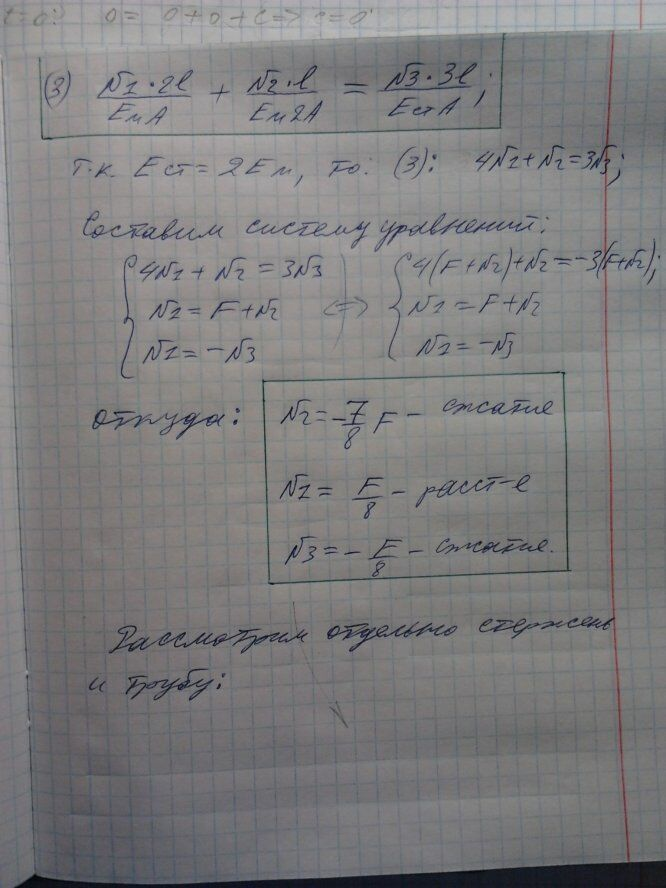 t=0: 0 = 0+0+c => c=0
(3) N1·2l/EмA + N2·l/Eм2A = N3·3l/EстA;
т.к. Eст = 2Eм, то: (3): 4N1+N2=3N3;
Составим систему уравнений:
{4N1+N2=3N3 {4(F+N2)+N2=-3(F+N2);
N1=F+N2 <=> N1=F+N2
N1=-N3 N1=-N3
откуда: N2=-7/8 F - сжатие
N1= F/8 - раст-е
N3=-F/8 - сжатие.
Рассмотрим отдельно стержень
и трубу: